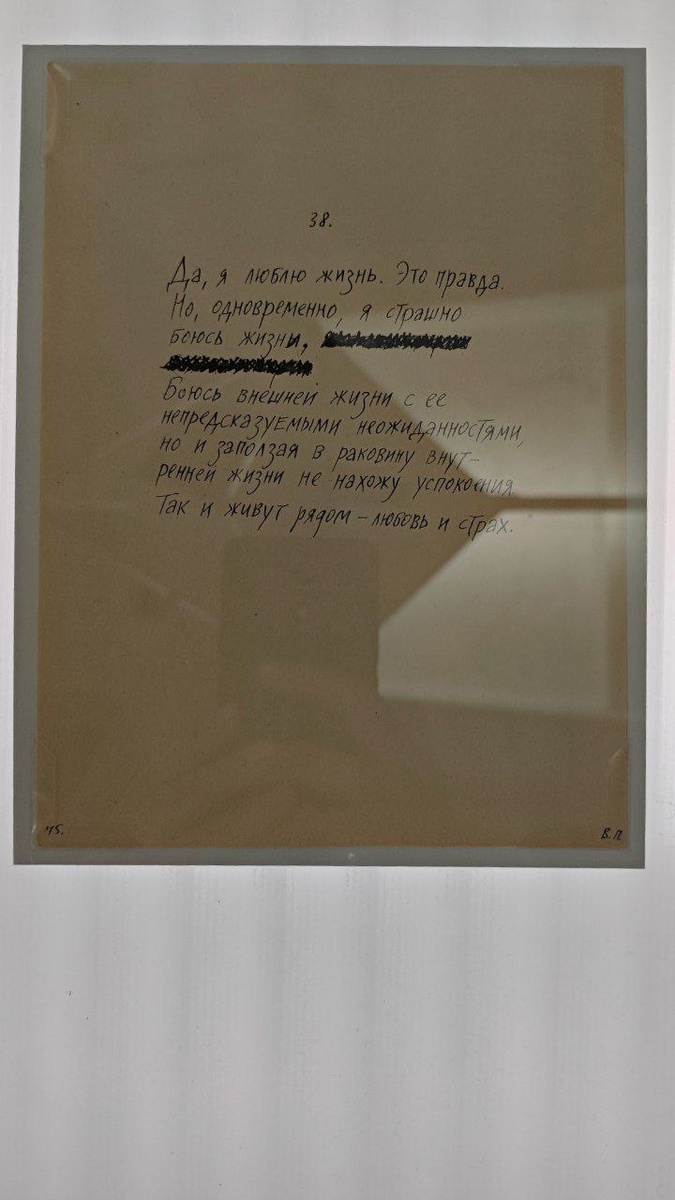 38.
Да, я люблю жизнь. Это правда.
Но, одновременно, я страшно
боюсь жизни,
Боюсь внешней жизни с ее
непредсказуемыми неожиданностями,
но и заползая в раковину внут-
ренней жизни не нахожу успокоения.
Так и живут рядом – любовь и страх.
75.
В. П.